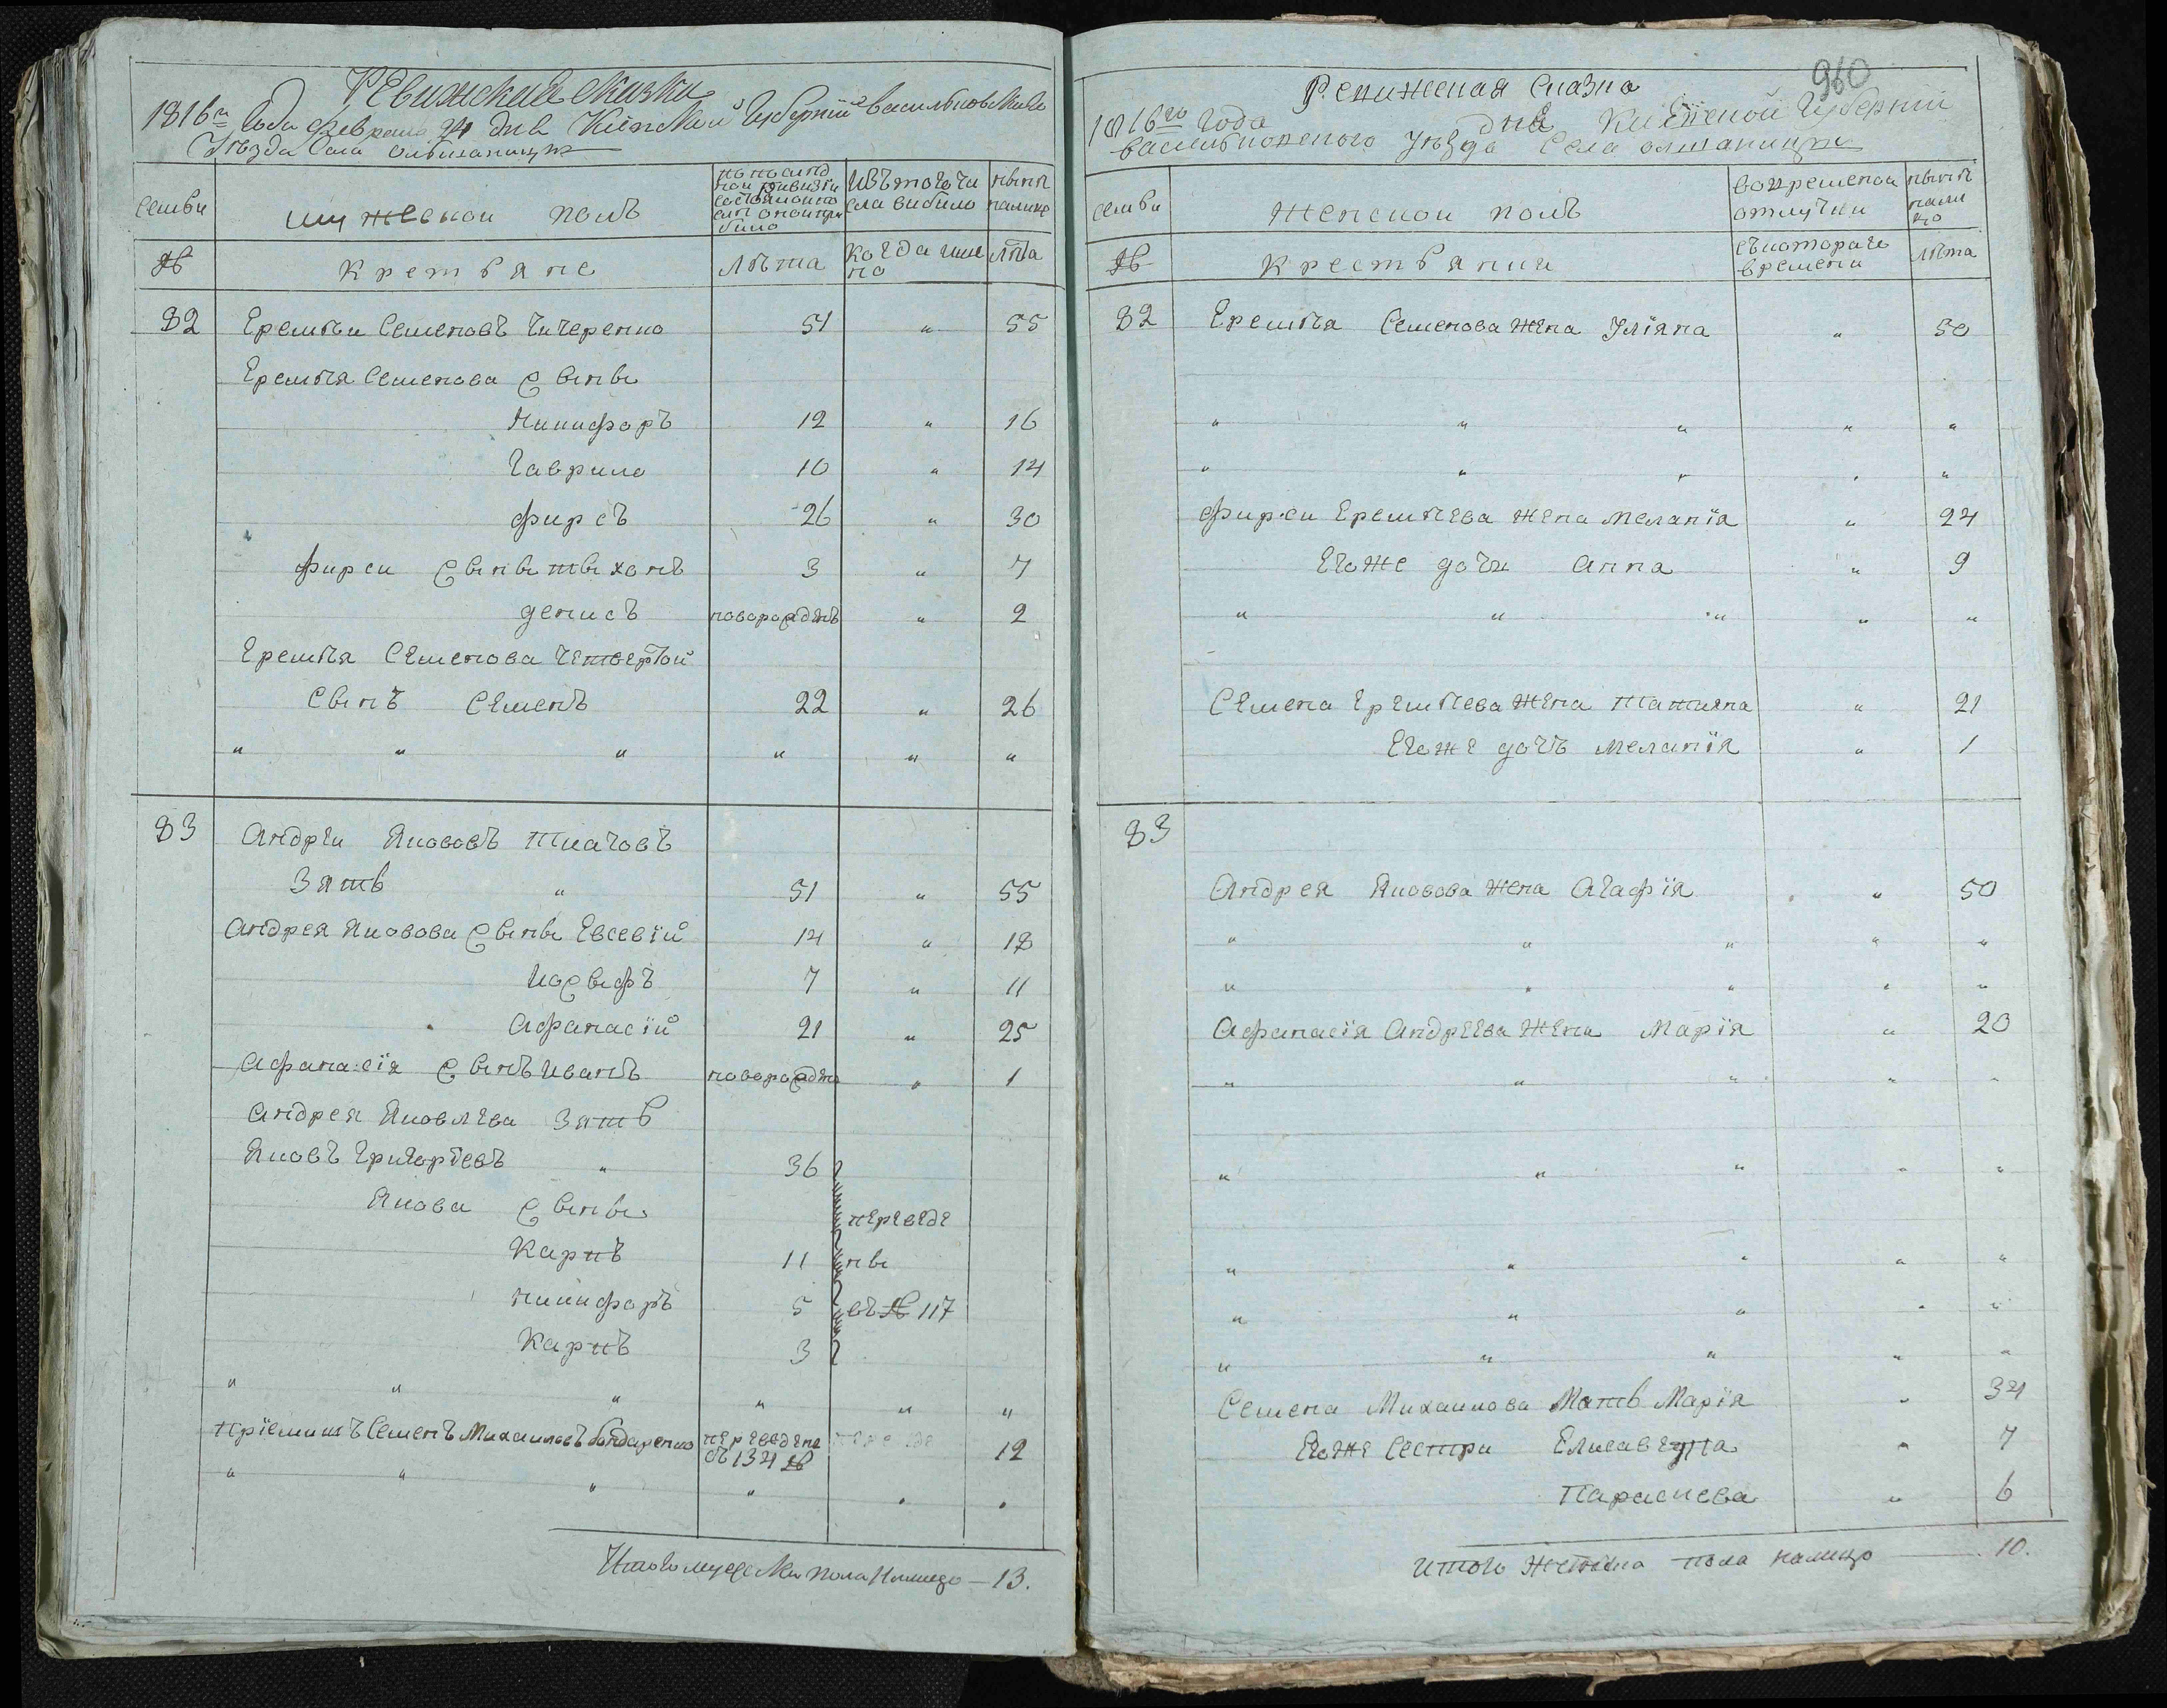 Ревижския скизки
1816го Года февраля 24 дня Киевской Губернии Васильковскаго
Уезда села Ольшаницы
семьи
мужескои полъ
по послед
ней ревизии
состояло и по
сле оной при
было
Изъ того чи
сла выбило
ныне
налицо
№
Крестьяне
лѣта
когда име
но
лѣта
82
Еремѣи Семеновъ Чичеренко
51
"
55
Еремѣя Семенова сыны
Никифоръ
12
"
16
Гаврило
10
"
14
Фирсъ
26
"
30
Фирси сыны Тыхонъ
3
"
7
Денисъ
новорожденъ
"
2
Еремѣя Семенова четвертой
Сынъ Семенъ
22
"
26
" " " " " "
83
Андрей Якововъ Ткачовъ
Зять "
51
"
55
Андрея Яковова сыны Евсевій
14
"
18
Иосыфъ
7
"
11
Афанасій
21
"
25
Афанасія сынъ Иванъ
новорожден
"
1
Андрея Яковлева зять
Яковъ Григорїевъ "
36
Якова сыны
переведе
Карпъ
11
ны
Никифоръ
5
въ № 117
Карпъ
3
" " " " " "
Пріемишъ Семенъ Михаиловъ Бондаренко
переведено
съ 134 №
12
" " " " " "
Итого мужеска пола налицо — 13.
960
Ревижская сказка
1816го года дня Киевской Губерніи
Васильковского уѣзда Села Олшаницы
семьи
женской полъ
во временой
отлучки
ныне
нали
цо
№
Крестьянки
съ котораго
времени
лѣта
82
Еремѣя Семенова жена Уліяна
"
50
" " " " "
" " " " "
Фирси Еремѣева жена Меланія
"
24
Егоже дочи Анна
"
9
" " " " "
Семена Еремѣева жена Татияна
"
21
Егоже дочъ Меланія
"
1
83
Андрея Яковова жена Агафія
"
50
" " " " "
" " " " "
Афанасія Андреева жена Марія
"
20
" " " " "
" " " " "
" " " " "
" " " " "
" " " " "
Семена Михаилова Мать Марія
"
34
Егоже сестри Елисавета
"
7
Параскева
"
6
Итого женска пола налицо — 10.